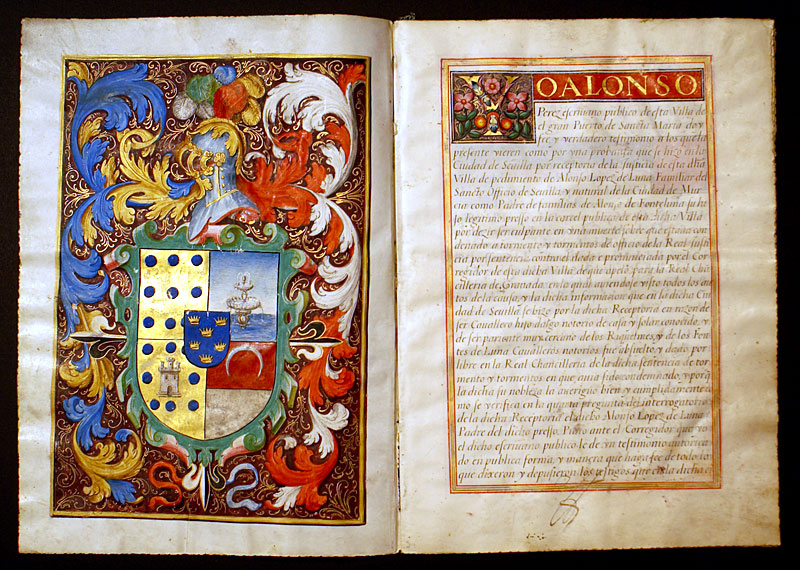 OALONSO
Perez escriuano publico de esta Villa de
el gran Puerto de Sancta Maria doy
fee y verdadero testimonio a los que la
presente vieren como por vna probança que se hizo en la
Ciudad de Seuilla por receptoria de la justicia de esta dha
Villa de pedimiento de Alonso Lopez de Luna Familiar del
Sancto Officio de Seuilla y natural de la Ciudad de Mur
cia como Padre de familias de Alonso de Fonteluña su hi
jo legitimo presso en la carcel publica de esta dicha Villa
por dezir ser culpante en vna muerte sobre que estaua con
denado a tormento y tormentos de officio de la Real Justi
cia por sentencia contra el dada y pronunciada por el Cor
regidor de esta dicha Villa de que apeló para la Real Chá
cilleria de Granada en la qual auiendose visto todos los au
tos de la causa, y la dicha informacion que en la dicha Ciu
dad de Seuilla se hizo por la dicha Receptoria en razon de
ser Cauallero hijo dalgo notorio de casa y solar conocido, y
de ser pariente muy cercano de los Riquelmes, y de los Fon
tes de Luna Caualleros notorios fue absuelto y dado por
libre en la Real Chancilleria de la dicha sentencia de tor
mento y tormentos en que auia sido condenado, y porq̃
la dicha su nobleza la aueriguó bien y cumplidamente co
mo se verifica en la quinta pregunta del interrogatorio
de la dicha Receptoria el dicho Alonso Lopez de Luna
Padre del dicho presso Pidio ante el Corregidor que yo
el dicho escriuano publico le de vn testimonio autoriza
do en publica forma, y manera que haga fee de todo lo
que dixeron y depusieron los testigos que en la dicha ci